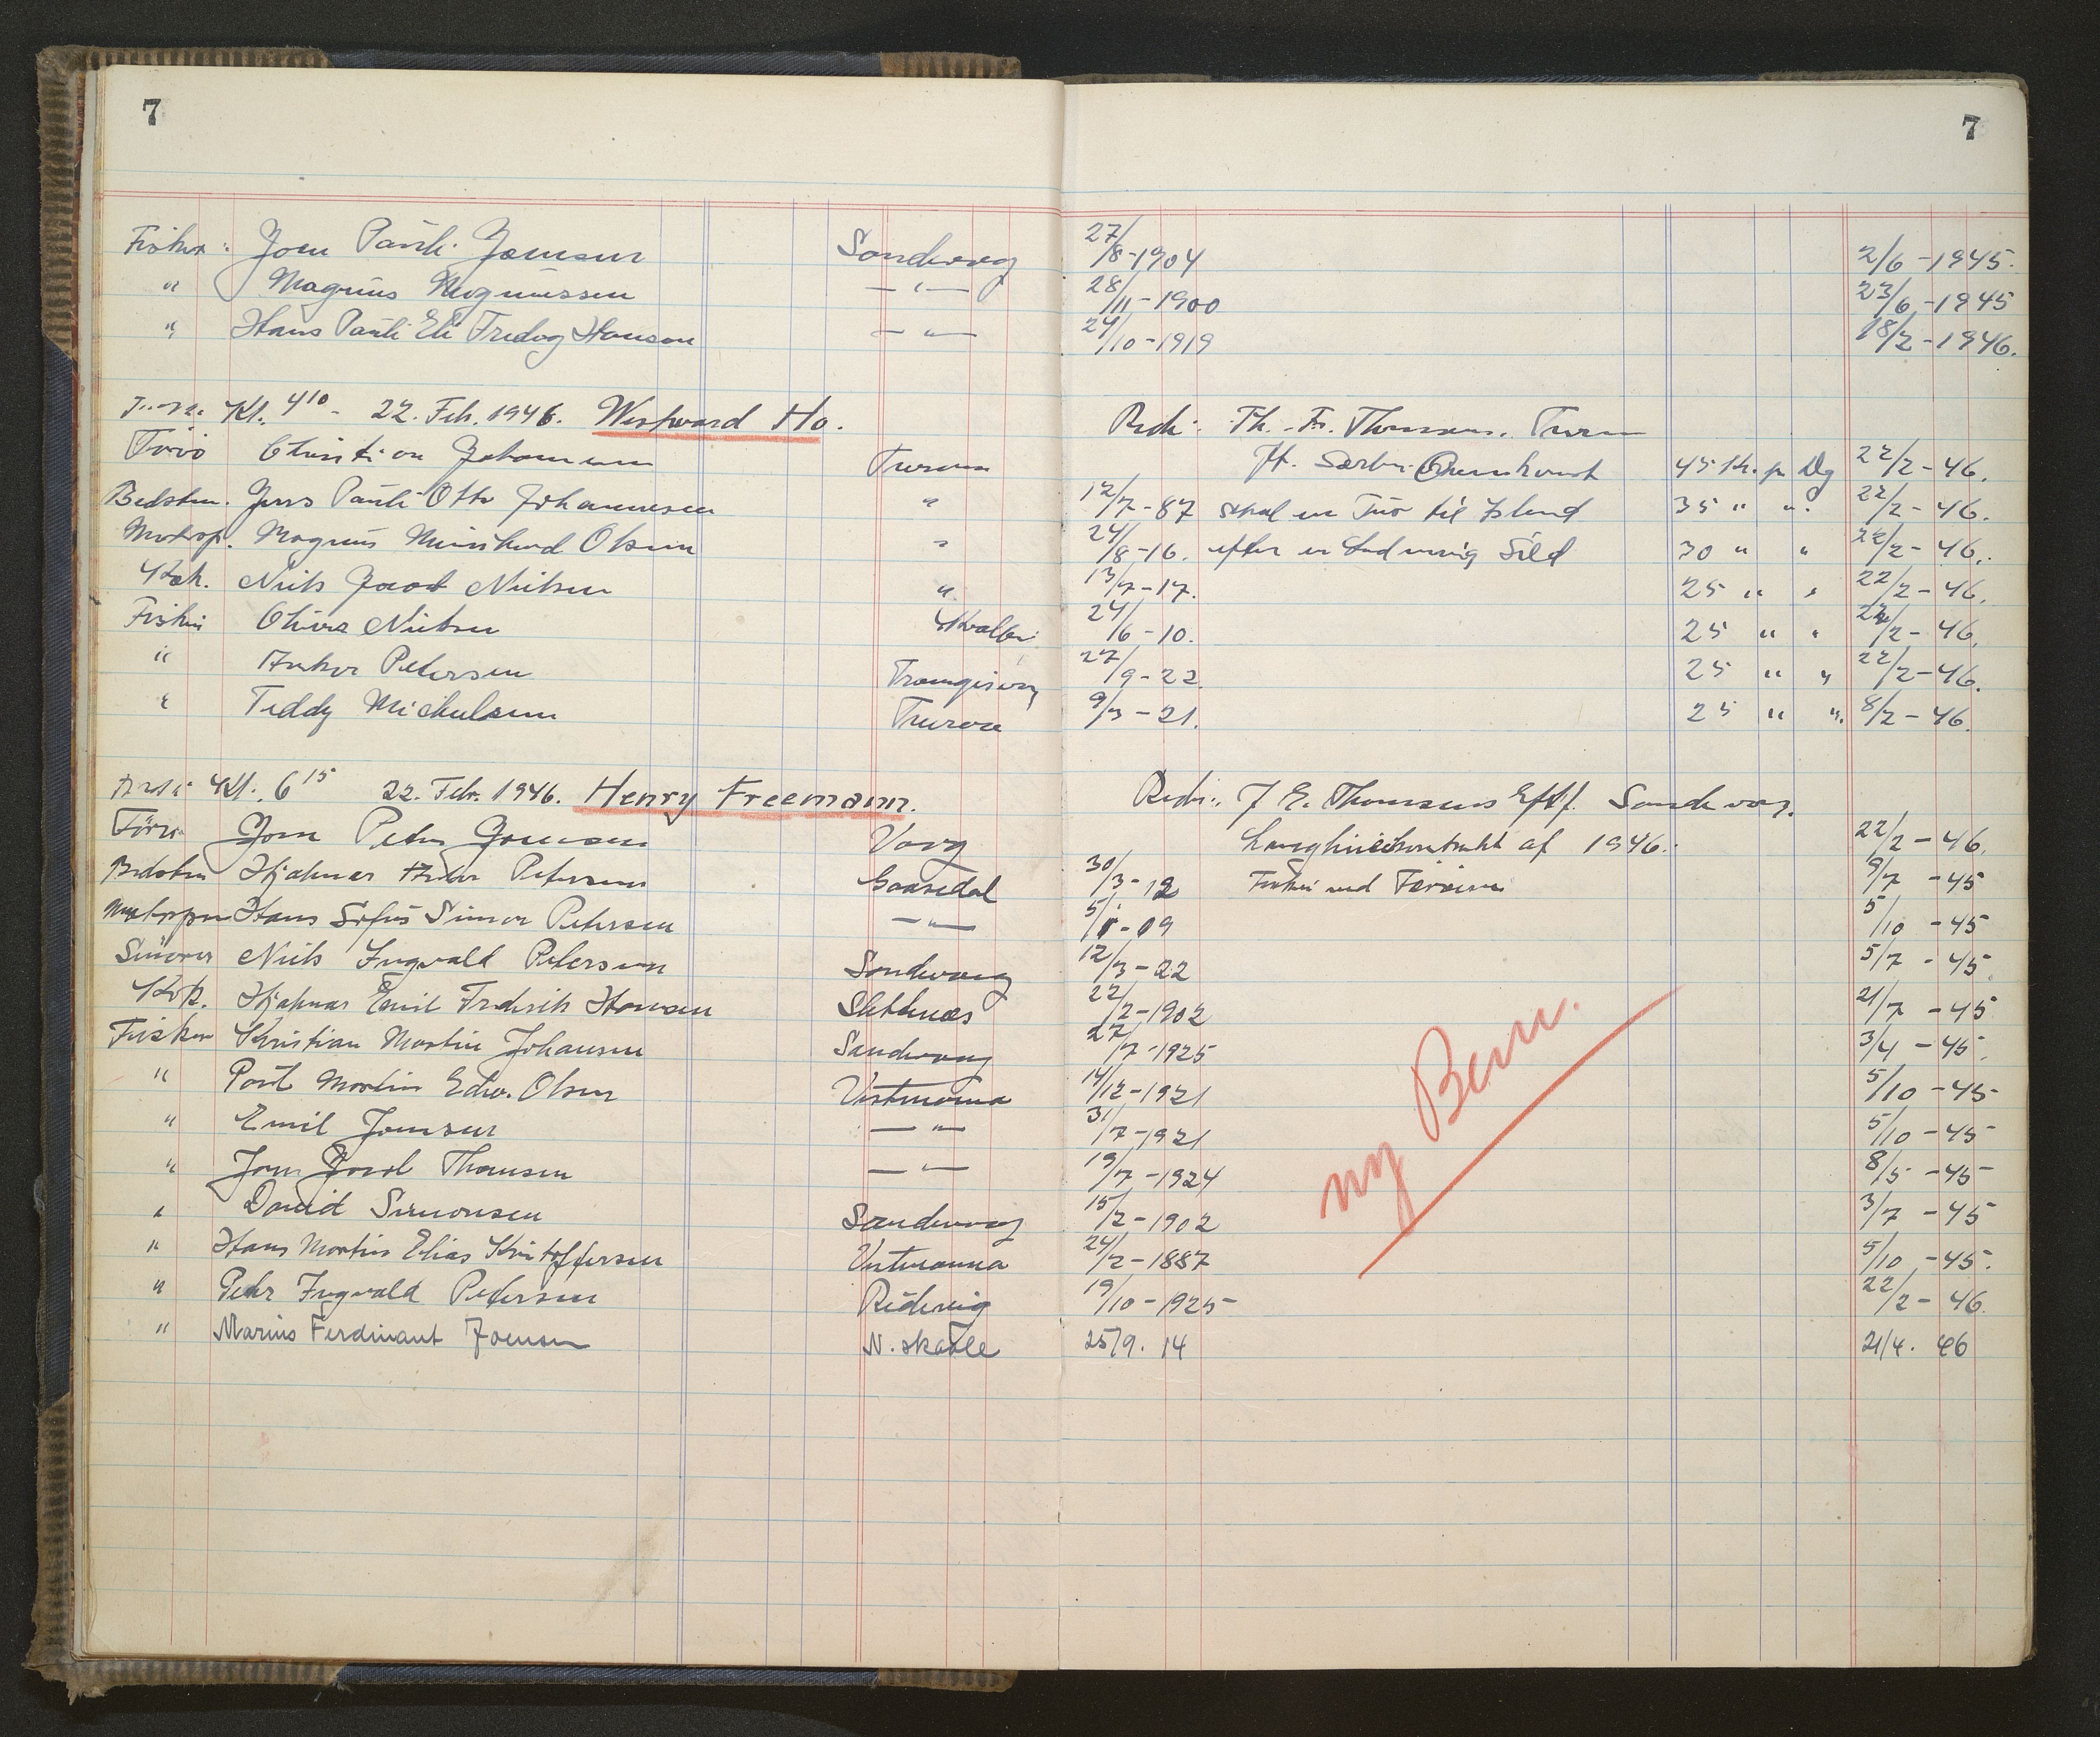 7 7
Fisker " Joen Pauli Joensen Sandevaag 27/8-1904 2/6-1945.
" Magnus Magnussen — " — 28/11-1900 23/6-1945
" Hans Pauli Eli Fredog Hansen — " — 24/10-1919 18/2-1946.
Kl. 4 10 - 22. Feb. 1946. Westward Ho. Rederi: Th. Fr. Thomsen. Tvøro
Förer Christian Johannesen Tveraa Ht. særlig Overenskomst 45 Kr. pr Dg 22/2-46.
Bedstm. Jens Pauli Otto Johannesen " 12/7-87 skal en Tur til Island 35 " ". 22/2-46.
Motorp. Magnus Meinhard Olsen " 24/8-16. efter en Ladning Sild 30 " " 22/2-46.
Kok. Niels Jacob Nielsen " 13/7-17. 25 " " 22/2-46.
Fisker Oliver Nielsen Kvalbø 24/6-10. 25 " " 22/2-46.
" Anker Petersen Trangisvaag 27/9-22. 25 " " 22/2-46.
" Teddy Michelsen Tveraa 9/3-21. 25 " ". 8/2-46.
Kl. 6 15 22. Febr. 1946. Henry Freemann. Rederi: J. E. Thomsens Eftf. Sandevaag.
Förer Joen Peter Joensen Vaag Langlinekontrakt af 1946. 22/2-46.
Bedstm Hjalmar Anker Petersen Gaasedal 30/3-12 Fiskeri ved Færøerne 9/7-45
Motorpasser Hans Sofus Simon Petersen — " — 5/1-09 5/10-45
Smörer Niels Ingvald Petersen Sandevaag 12/3-22 5/7-45.
Kok. Hjalmar Emil Frederik Hansen Slettenæs 22/2-1902 21/7-45
Fisker Kristian Martin Johansen Sandevaag 27/7-1925 3/4-45.
" Poul Martin Edw. Olsen Vestmanna 14/12-1921 5/10-45
" Emil Joensen — " — 31/7-1921 5/10-45
" Joen Jacob Thomsen — " — 19/7-1924 8/5-45
" David Simonsen Sandevaag 15/2-1902 3/7-45
" Hans Martin Elias Kristoffersen Vestmanna 24/2-1887 5/10-45.
" Peter Ingvald Petersen Ridevig 19/10-1925 22/2-46.
" Marius Ferdinant Joensen N. skaale 25/9. 14 21/4. 46
ny Bem.